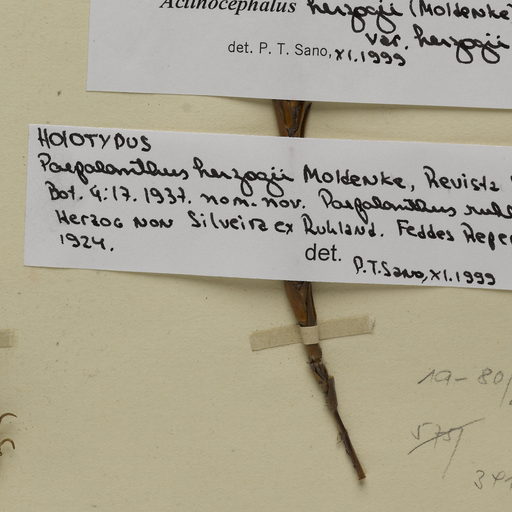 Actinocephalus herzogii (Moldenke)
var. herzogii
det. P. T. Sano, XI.1999
HOLOTYPUS
Paepalanthus herzogii Moldenke, Revista
Bot. 4:17. 1937. nom. nov. Paepalanthus
Herzog non Silveira ex Ruhland. Feddes Reper
1924.
det.
P.T.Sano, XI.1999
19-80/
575